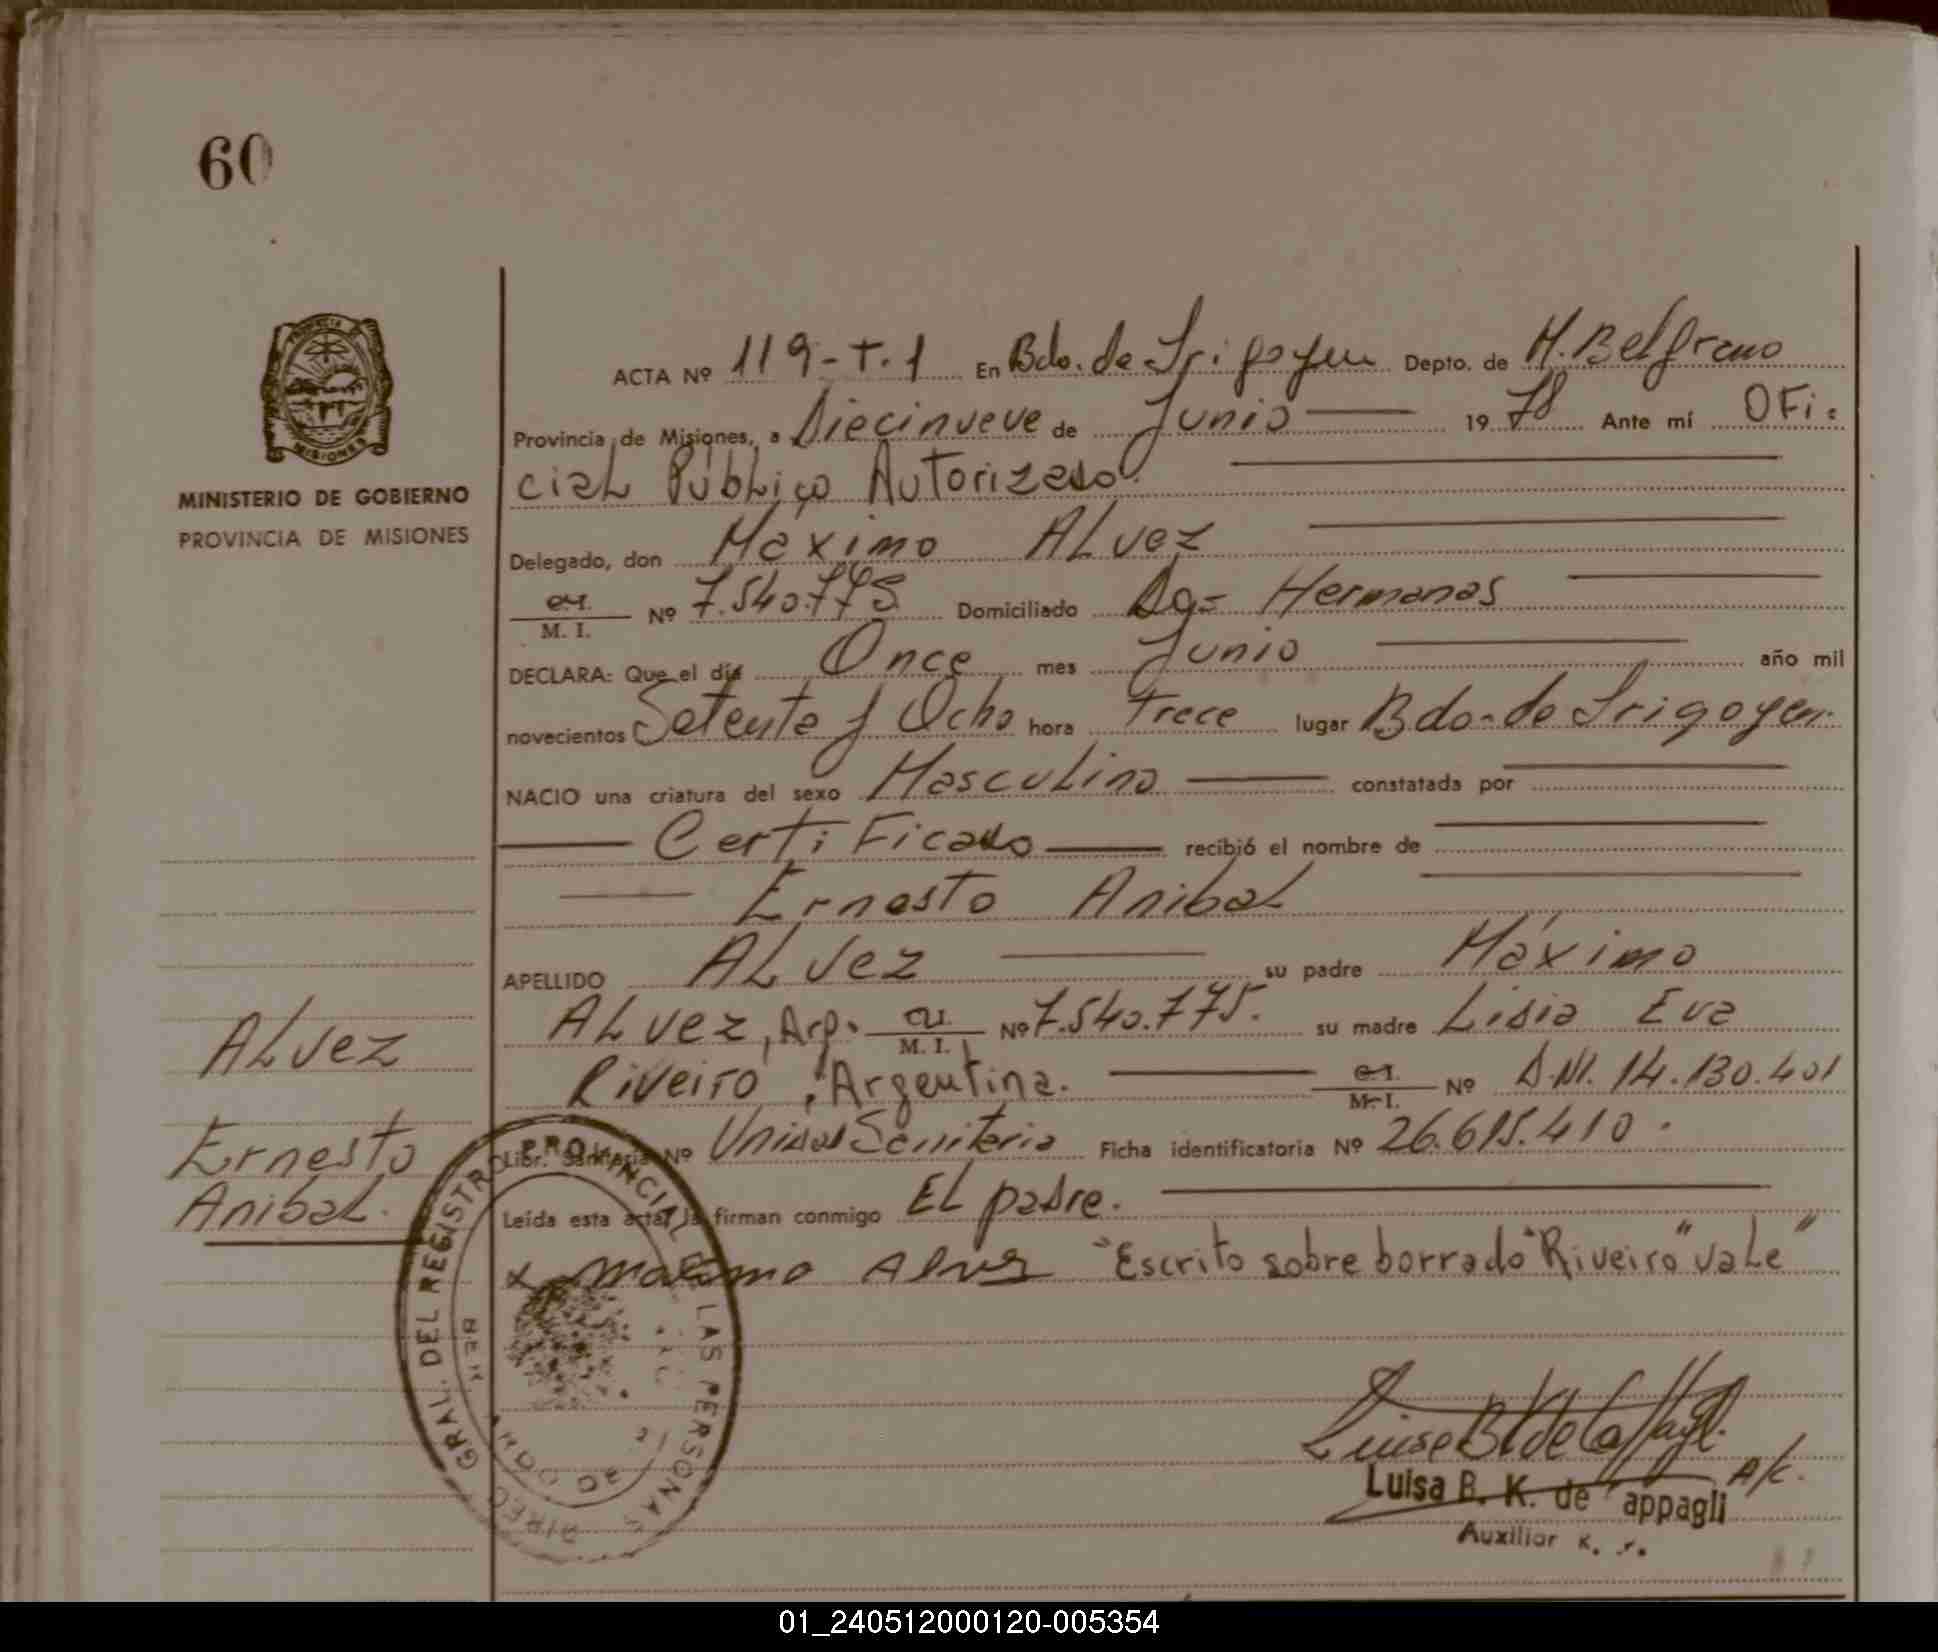 60
PROVINCIA
MISIONES
MINISTERIO DE GOBIERNO
PROVINCIA DE MISIONES
ACTA Nº 119-T.1 En Bdo. de Irigoyen Depto. de M. Belgrano
Provincia de Misiones, a Diecinueve de Junio 1978 Ante mí OFi-
ciaL PúbLico Autorizado.
Delegado, don Máximo ALvez
C.I. M. I. Nº 7.540.775 Domiciliado Dos Hermanas
DECLARA: Que el día Once mes Junio año mil
novecientos Setenta y Ocho hora Trece lugar Bdo. de Irigoyen.
NACIO una criatura del sexo MascuLino constatada por
CertiFicado recibió el nombre de
Ernesto AnibaL
APELLIDO ALvez su padre Máximo
ALvez, Arg. C.I. M. I. Nº 7.540.775. su madre Lidia Eva
Riveiro, Argentina. C.I. M. I. Nº D.N.I. 14.130.401
Libr. Sanitaria Nº Unidad Sanitaria Ficha identificatoria Nº 26.615.410.
Leída esta acta, la firman conmigo EL padre.
x maximo Alvez "Escrito sobre borrado "Riveiro" vaLe"
ALvez
Ernesto
AnibaL.
DIREC. GRAL. DEL REGISTRO PROVINCIAL DE LAS PERSONAS
Luisa B. K. de Cappagli A/c.
Luisa B. K. de appagli
Auxiliar
01_240512000120-005354